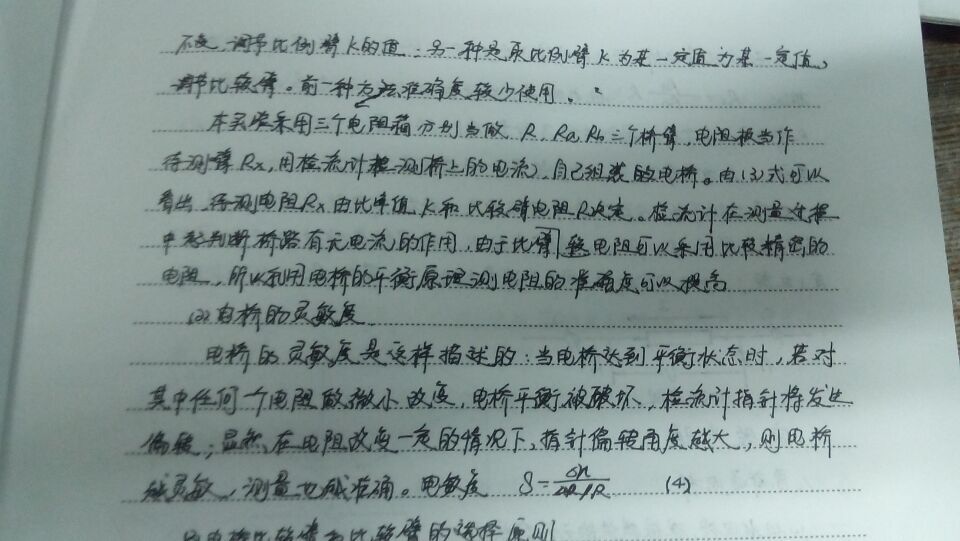 不变,调节比例臂K的值;另一种是取比例臂K为某一定值为某一定值,
调节比较臂。前一种方法准确度较少使用。
本实验采用三个电阻箱分别当做 R、Ra、Rb三个桥臂,电阻板当作
待测臂Rx,用检流计检测桥上的电流),自己组装的电桥。由(3)式可以
看出,待测电阻Rx由比率值K和比较臂电阻R决定。检流计在测量过程
中起判断桥路有无电流的作用,由于比臂 电阻可以采用比较精密的
电阻,所以利用电桥的平衡原理测电阻的准确度可以提高
(2)电桥的灵敏度
电桥的灵敏度是这样描述的:当电桥达到平衡状态时,若对
其中任何一个电阻做微小改变,电桥平衡被破坏,检流计指针将发生
偏转;显然,在电阻改变一定的情况下,指针偏转角度越大,则电桥
越灵敏,测量也越准确。电敏度 S=Δn/ΔR/R (4)
电桥比较臂与比较臂的选择原则